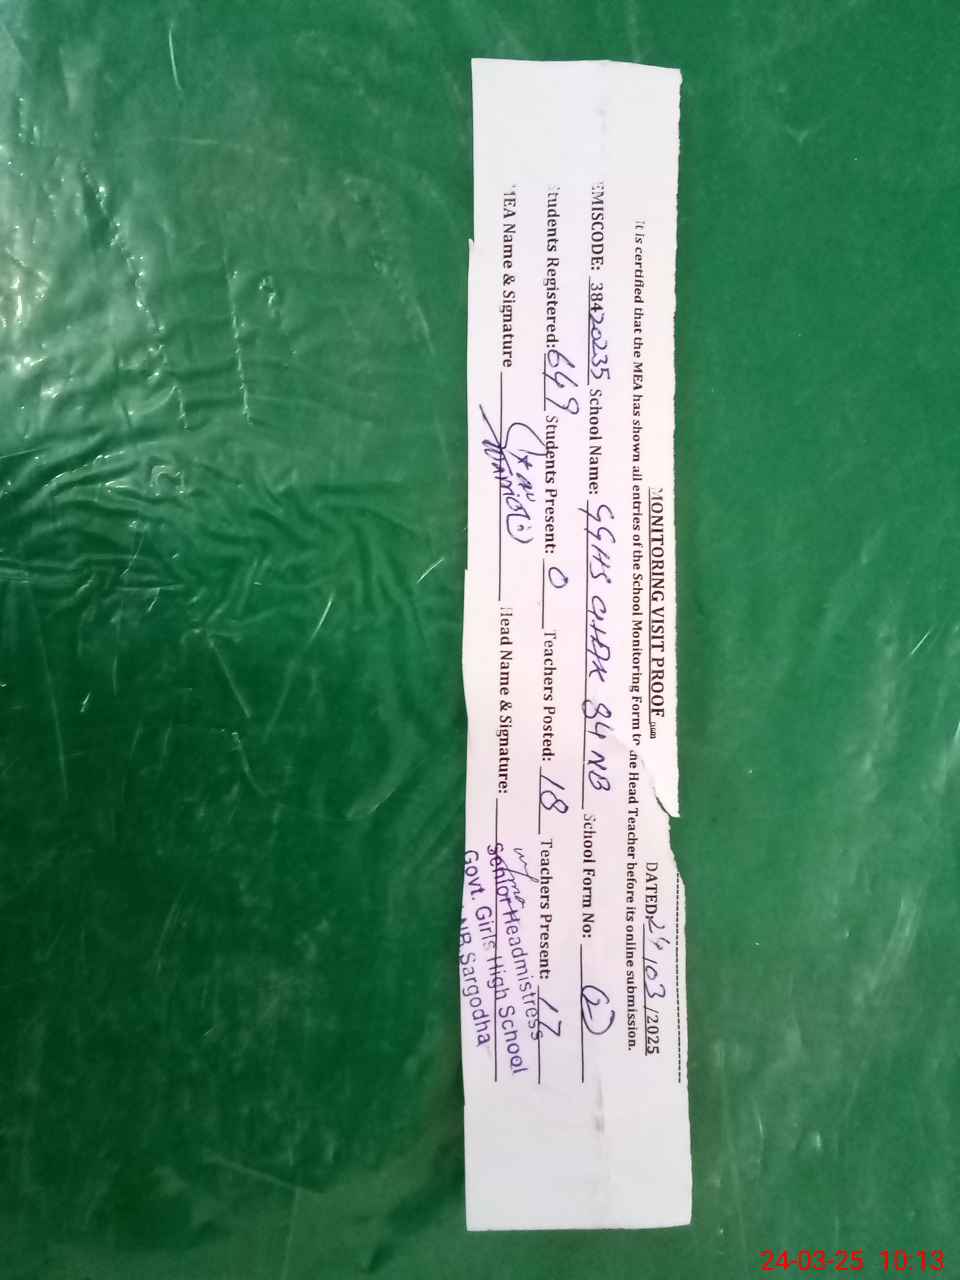 MONITORING VISIT PROOF
DATED: 24/03/2025
It is certified that the MEA has shown all entries of the School Monitoring Form to the Head Teacher before its online submission.
EMISCODE: 38420235 School Name: GGHS CHAK 84 NB School Form No:
Students Registered: 649 Students Present: 0 Teachers Posted: 18 Teachers Present: 17
MEA Name & Signature Head Name & Signature:
Senior Headmistress
Govt. Girls High School
NB Sargodha
24-03-25 10:13